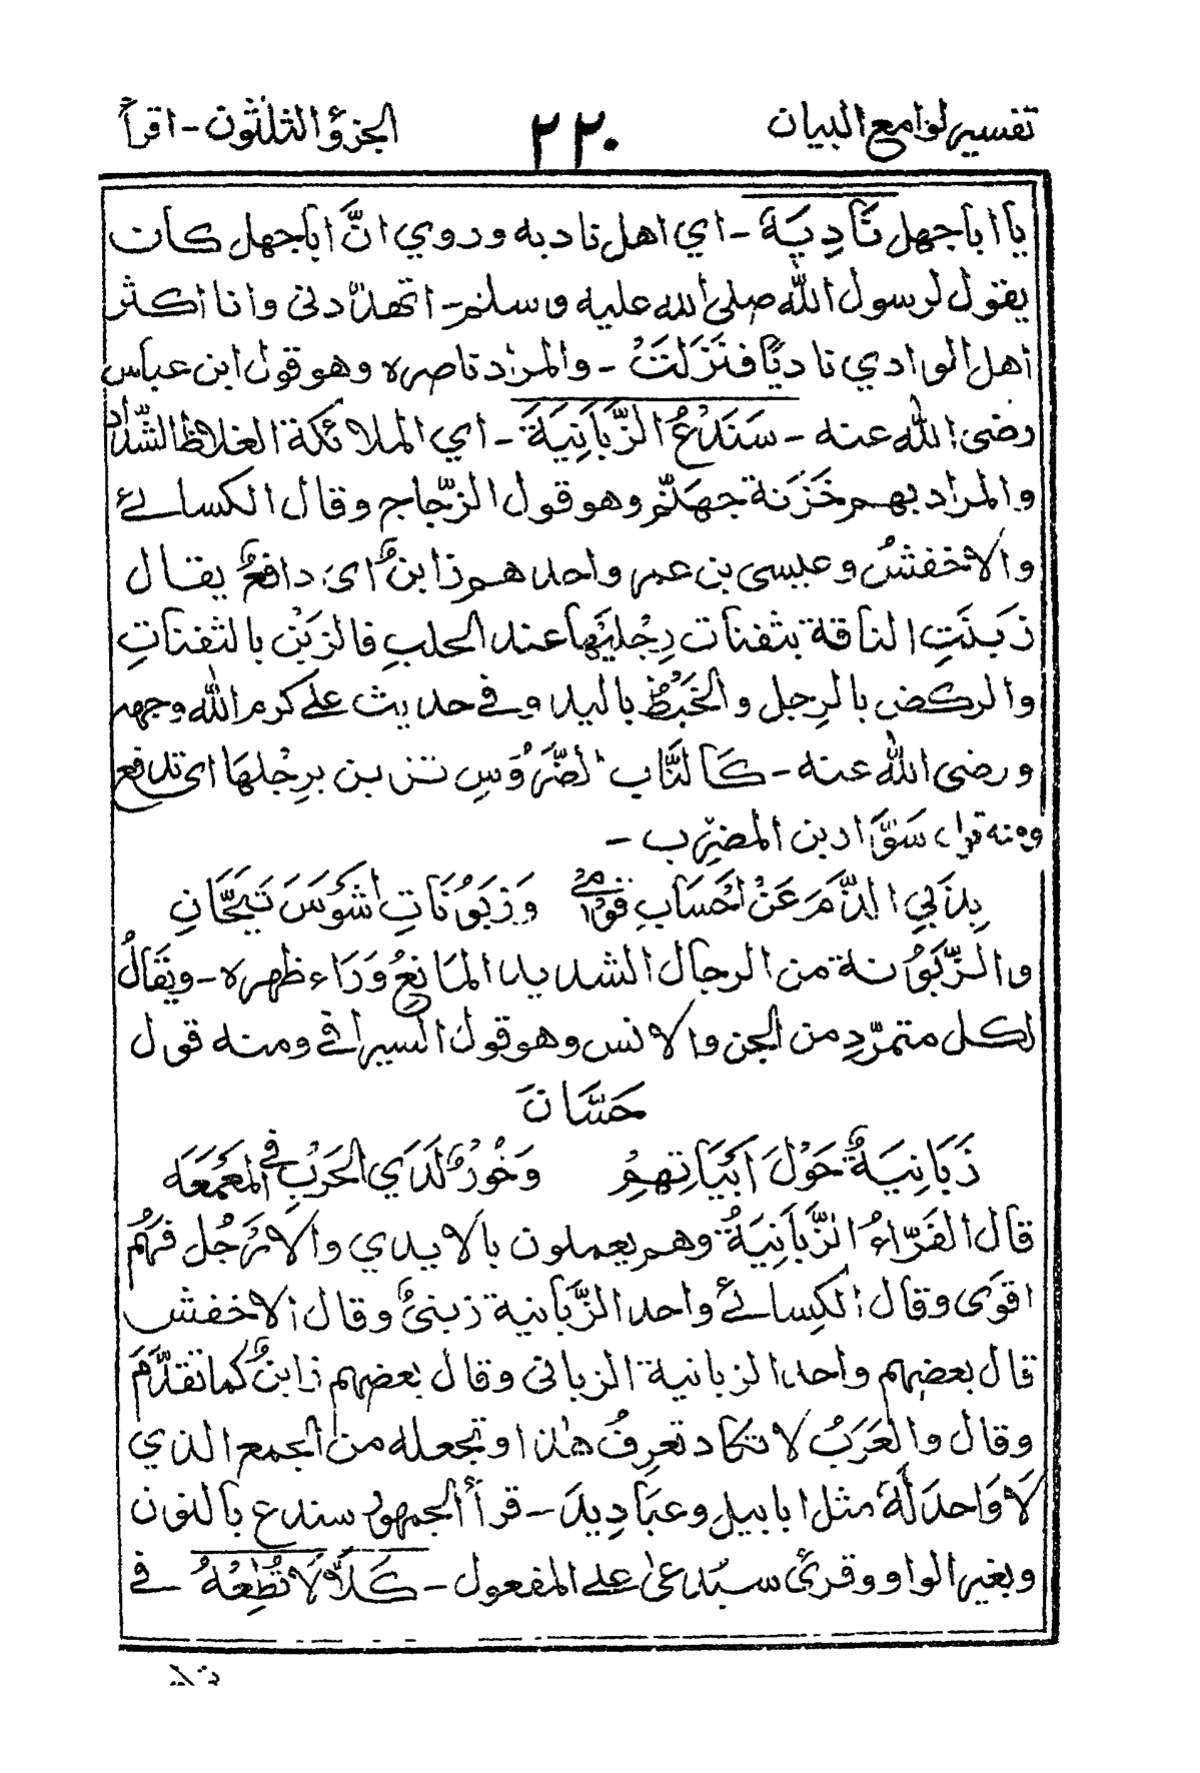 تفسير لوامع البيان ٢٢٠ الجزؤ الثلثون - اقرأ
يا اباجهل نَادِيَهُ - اي اهل ناديه وروي انَّ اباجهل كان
يقول لرسول الله صلى الله عليه وسلم - اتهدّدنى وانا اكثر
اهل الوادي ناديًا فَنَزَلَتْ - والمراد ناصره وهو قول ابن عباس
رضى الله عنه - سَنَدْعُ الزَّبَانِيَةَ - اي الملائكة الغلاظ الشّداد
والمراد بهم خَزَنة جهنّم وهو قول الزّجاج وقال الكسائے
والاخفش وعيسى بن عمر واحدهم زابنٌ اى دافعٌ يقال
زَبَنَتِ الناقة بثفنات رِجْلَيْها عند الحلبِ فالزَبْن بالثفناتِ
والركض بالرِجل والخَبْطُ باليد وفے حديث علے كرم الله وجهه
ورضى الله عنه - كَالنَّاب الضَّرُوْسِ تزبن برِجْلهَا اى تدفع
ومنه قول سَوَّاد بن المضرِّب -
بِذَبِّي الذَّمَ عَنْ اَحْسَابِ قَوْمِيْ وَزَبُّوْنَاتِ اَشْوَسَ تَيَّحَانِ
والزَّبُّوْنة من الرجال الشديد المَانِعُ وَرَاء ظهره - ويقَالُ
لكل متمرّدٍ من الجن والانس وهو قول السيرافے ومنه قول
حَسَّانَ
زَبَانِيَةٌ حَوْلَ اَبْيَاتِهِمْ وَخُوْرٌ لَدَي الحَرْبِ فے المَعْمَعَه
قال الفَرَّاءُ الزَّبَانِيَةُ وهم يعملون بالايدي والاَرْجُل فَهُمْ
اقوَى وقال الكِسائےُ واحد الزَّبانية زبنىٌ وقال الاخفش
قال بعضهم واحد الزبانية الزبانى وقال بعضهم زابنٌ كما تقدَّمَ
وقال والعَرَبُ لا تكاد تعرِفُ هٰذا وتجعله من الجمع الذي
لَا وَاحدَ لَهٗ مثل ابابيل وعبَادِيدَ - قرأ الجمهور سندع بالنون
وبغير الواو وقرئ سيُدعىٰ علے المفعول - كَلَّا لَا تُطِعْهُ فے